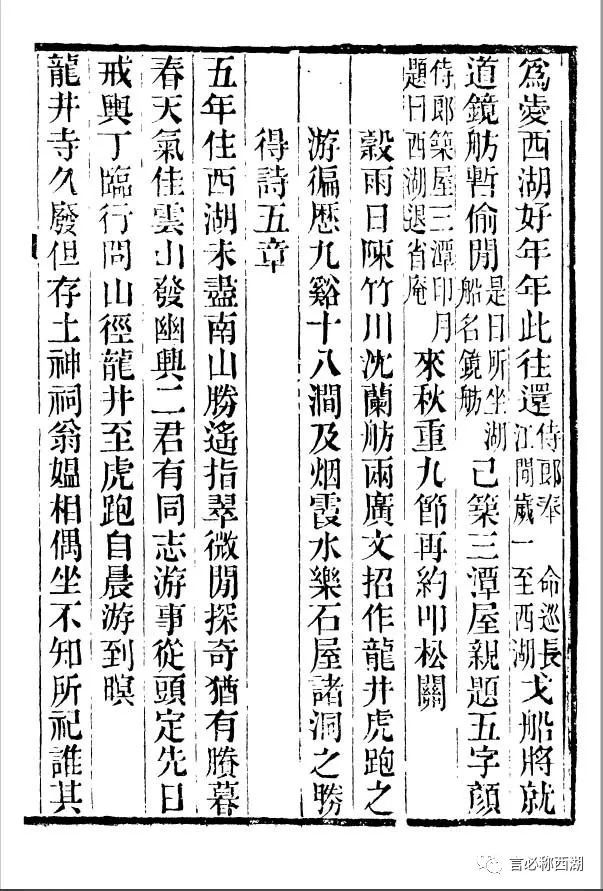 爲愛西湖好年年此往還侍郎奉 命巡長江間歲一至西湖戈船將就
道鏡舫暫偷閒是日所坐湖船名鏡舫已築三潭屋親題五字顏
侍郎築屋三潭印月題曰西湖退省庵來秋重九節再約叩松關
穀雨日陳竹川沈蘭舫兩廣文招作龍井虎跑之
游徧歷九谿十八澗及烟霞水樂石屋諸洞之勝
得詩五章
五年住西湖未盡南山勝遙指翠微閒探奇猶有賸暮
春天氣佳雲山發幽興二君有同志游事從頭定先日
戒輿丁臨行問山徑龍井至虎跑自晨游到暝
龍井寺久廢但存土神祠翁媼相偶坐不知所祀誰其
言必称西湖